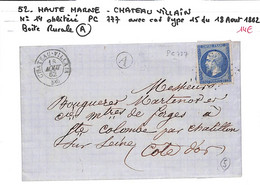 52. HAUTE MARNE - CHATEAU VILLAIN
N°14 oblitéré PC 777 avec cad type 15 du 18 Aout 1862
Boite Rurale A
14€
A
PC777
CHATEAU-VILLAIN
18
AOUT
Messieurs,
Bouqueret Martenot et
maîtres de forges à
Ste Colombe par chatillon
sur Seine (Côte d'or)